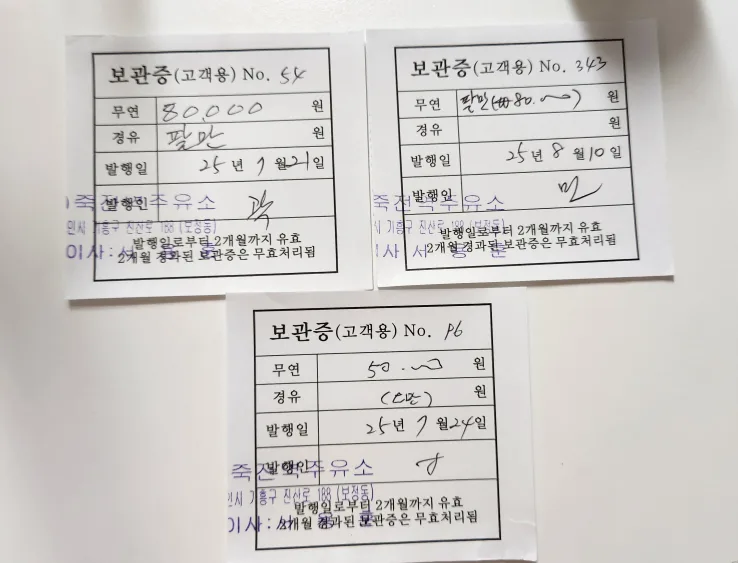 보관증(고객용) No. 54
무연 80,000 원
경유 팔만 원
발행일 25년 7월 21일
발행인 곽
죽전역주유소
인시 기흥구 진산로 188 (보정동)
이사:서
발행일로부터 2개월까지 유효
2개월 경과된 보관증은 무효처리됨
보관증(고객용) No. 343
무연 팔만(₩80.000) 원
경유 원
발행일 25년 8월 10일
발행인 민
죽전역주유소
시 기흥구 진산로 188 (보정동)
사 서 훈
발행일로부터 2개월까지 유효
2개월 경과된 보관증은 무효처리됨
보관증(고객용) No. 96
무연 50.000 원
경유 (오만) 원
발행일 25년 7월 24일
발행인
죽전역주유소
인시 기흥구 진산로 188 (보정동)
이사:서 훈
발행일로부터 2개월까지 유효
2개월 경과된 보관증은 무효처리됨